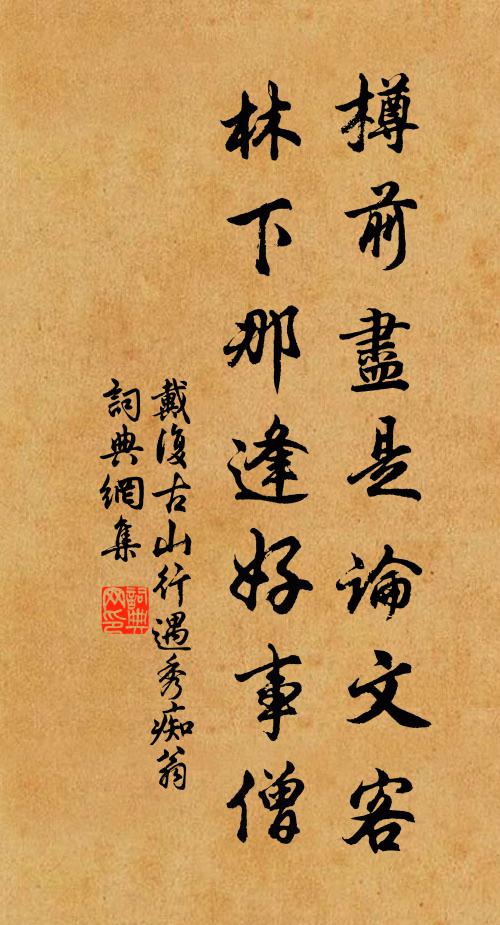 樽前盡是論文客
林下那逢好事僧
戴復古山行遇秀痴翁
詞典網集
詞典
网印